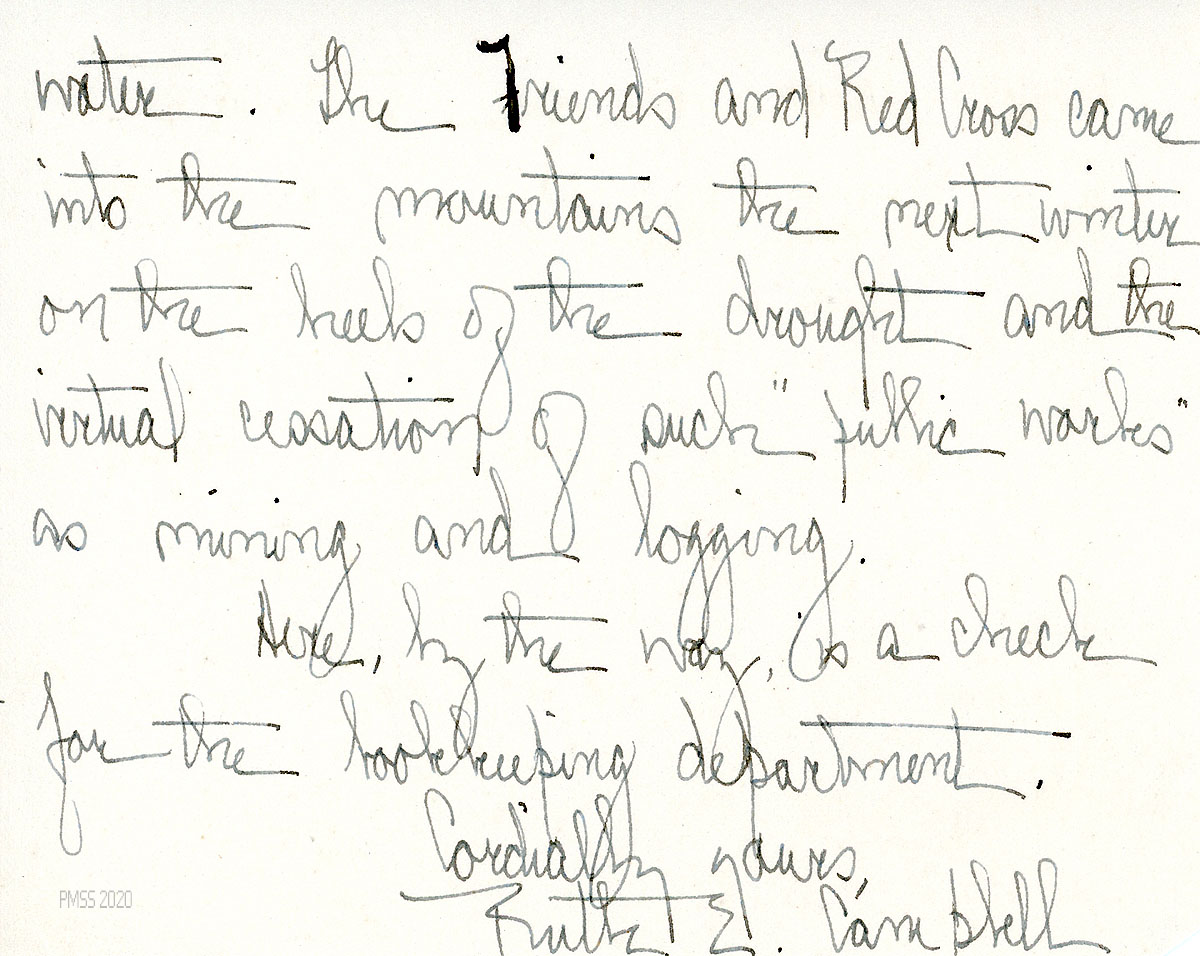 water. The Friends and Red Cross came
into the mountains the next winter
on the heels of the drought and the
virtual cessation of such "public works"
as mining and logging.
Here, by the way, is a check
for the bookkeeping department.
Cordially yours,
Ruth E. Campbell
PMSS 2020